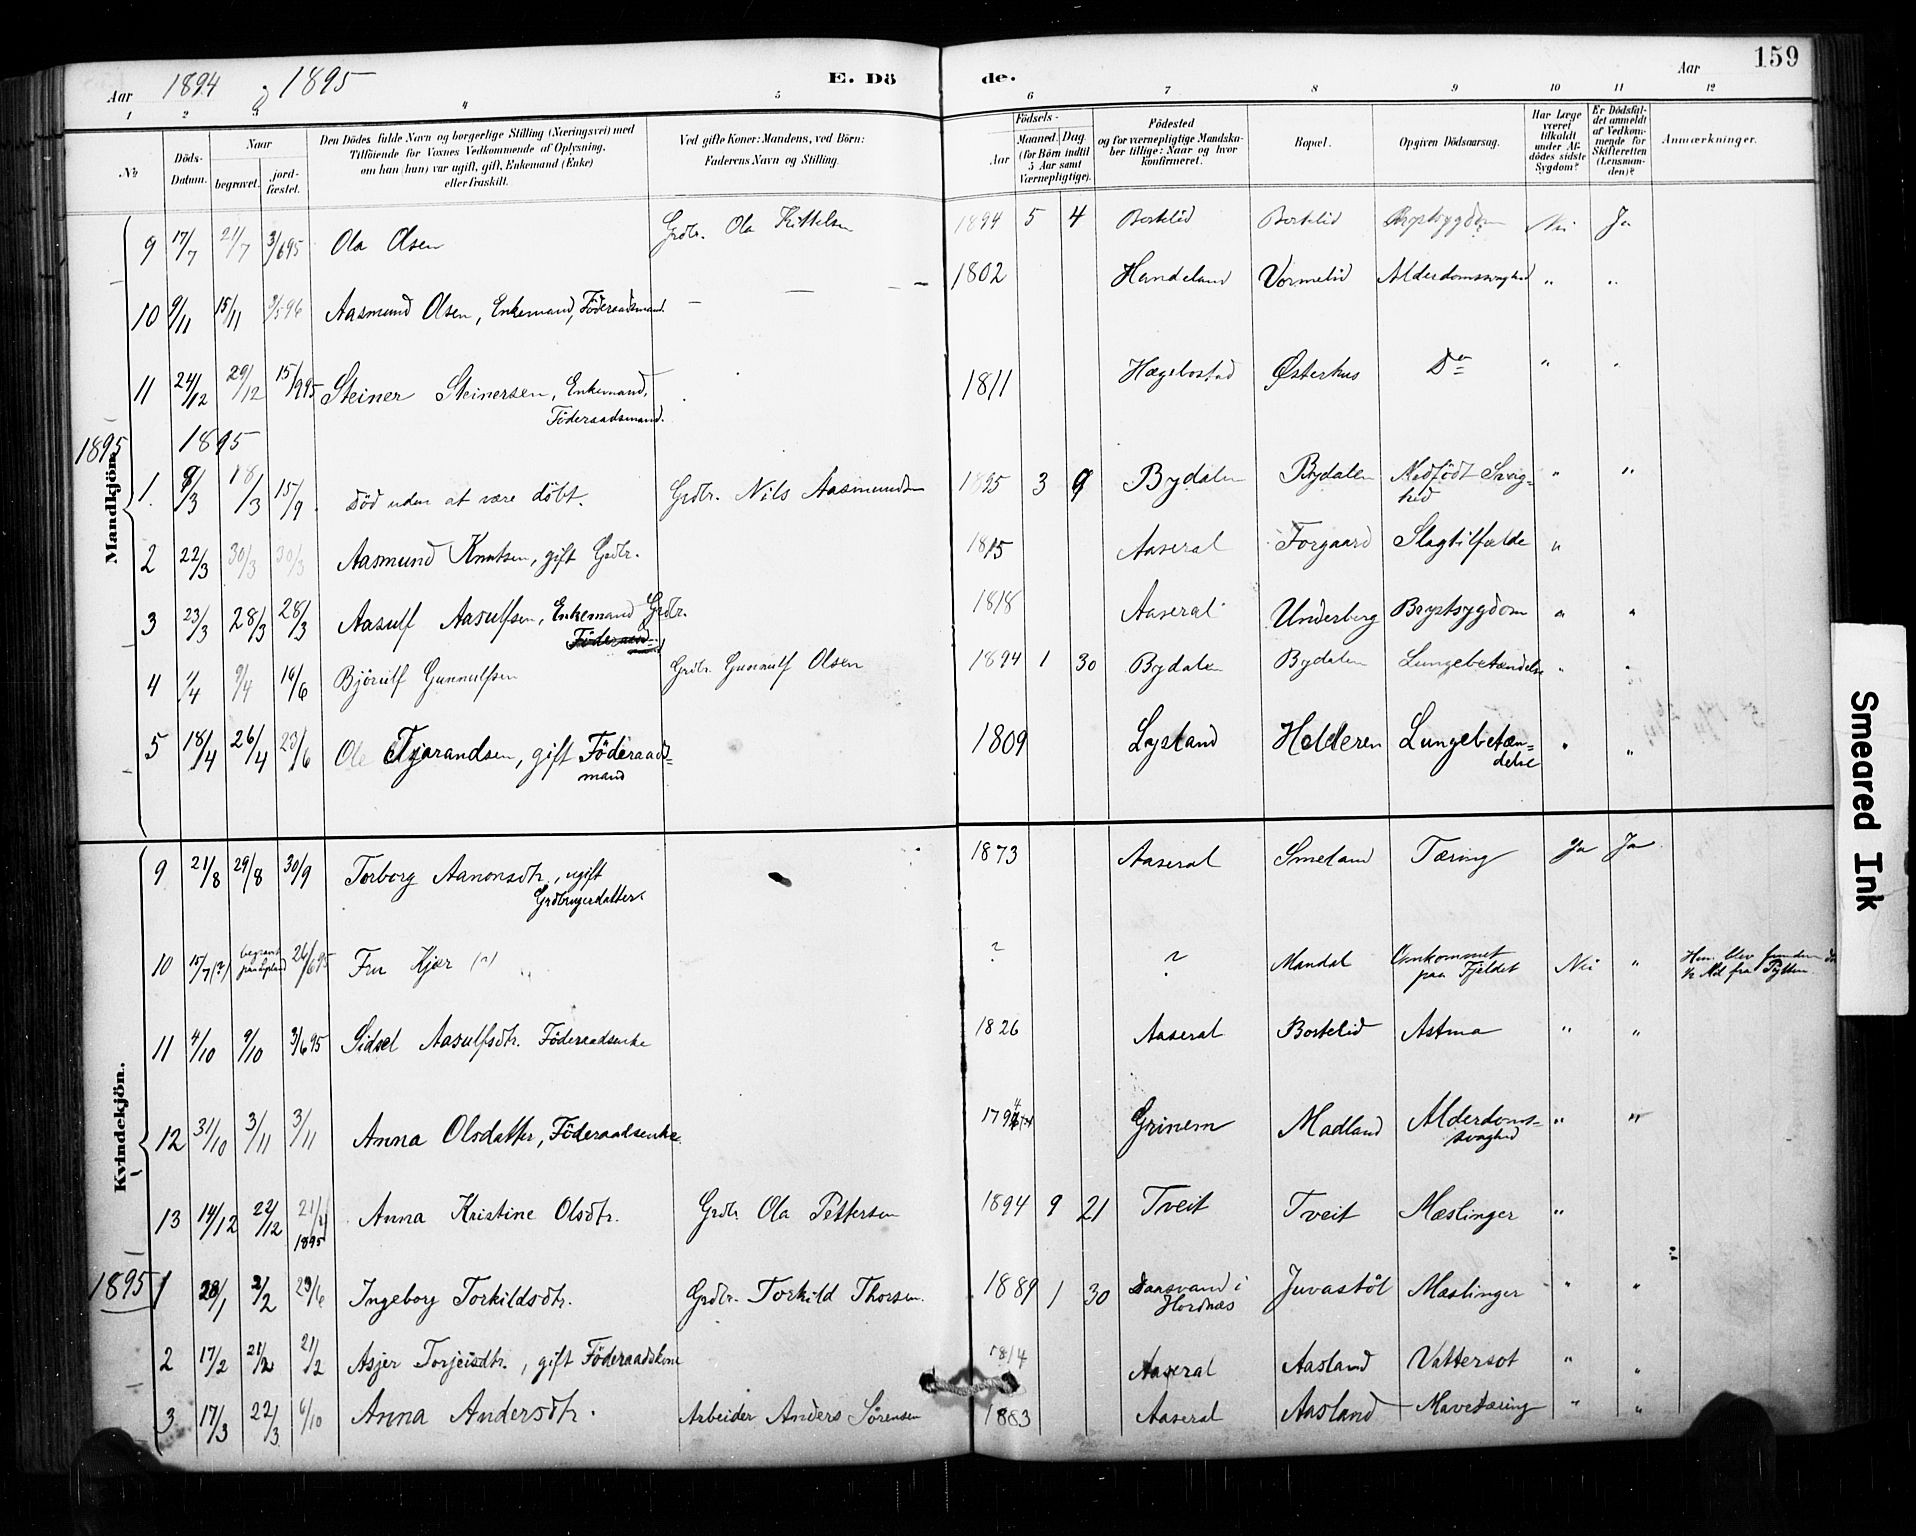 159
Aar 1894 og 1895 E. Döde. Aar
1 2 3 4 5 6 7 8 9 10 11 12
No.
Döds-Datum.
Naar
begravet.
jord-fæstet.
Den Dödes fulde Navn og borgerlige Stilling (Næringsvei) med
Tilföiende for Voxnes Vedkommende af Oplysning,
om han (hun) var ugift, gift, Enkemand (Enke)
eller fraskilt.
Ved gifte Koner: Mandens, ved Börn:
Faderens Navn og Stilling.
Födsels-
Aar
Maaned. Dag.
(for Börn indtil
5 Aar samt
Værnepligtige).
Födested
og for værnepligtige Mandska-
ber tillige: Naar og hvor
konfirmeret.
Bopæl.
Opgiven Dödsaarsag.
Har Læge
været
tilkaldt
under Af-
dödes sidste
Sygdom?
Er Dödsfal-
det anmeldt
af Vedkom-
mende for
Skifteretten
(Lensman-
den)?
Anmærkninger.
Mandkjön.
9 17/7 21/7 3/6 95 Ola Olsen Grdbr. Ola Kittelsen 1894 5 4 Bortelid Bortelid Brystsygdom Nei Ja
10 9/11 15/11 3/5 96 Aasmund Olsen, Enkemand, Föderaadsmand. — — — 1802 Handeland Vormelid Alderdomssvaghed " "
11 24/12 29/12 15/9 95 Steiner Steinersen, Enkemand,
Föderaadsmand.
1811 Hægebostad Østerhus Do " "
1895 1895
1. 9/3 18/3 15/9 död uden at være döbt. Grdbr. Nils Aasmundsen 1895 3 9 Bydalen Bydalen Medfödt Svag-
hed " "
2 22/3 30/3 30/3 Aasmund Knutsen, gift Grdbr. 1815 Aaseral Forgaard Slagtilfælde "
3 23/3 28/3 28/3 Aasulf Aasulfsen, Enkemand Grdbr. 1818 Aaseral Underberg Brystsygdom " "
4 1/4 9/4 16/6 Bjórulf Gunnulfsen Grdbr. Gunnulf Olsen 1894 1 30 Bydalen Bydalen Lungebetændelse " "
5 18/4 26/4 23/6 Ole Tjarandsen, gift Föderaads-
mand
1809 Lysland Helderen Lungebetæn-
delse " "
Kvindekjön.
9 21/8 29/8 30/9 Torborg Aanonsdtr., ugift
Grdbrugerdatter.
1873 Aaseral Smeland Tæring Ja Ja
10 15/7 (?) begravet
paa Lysland 26/6 95 Fru Kjær (?) ? ? Mandal Omkommet
paa Fjeldet Nei " Hun blev funden
1/2 Mil fra Pytten
11 4/10 9/10 3/6 95 Sidsel Aasulfsdtr. Föderaadsenke 1826 Aaseral Bortelid Astma " "
12 31/10 3/11 3/11 Anna Olsdatter, Föderaadsenke. 1794 Grinem Madland Alderdoms-
svaghed " "
13 14/12 22/12 21/4
1895 Anna Kristine Olsdtr. Grdbr. Ola Pettersen 1894 9 21 Tveit Tveit Mæslinger "
1895 1 28/1 2/2 23/6 Ingeborg Torkildsdtr. Grdbr. Torkild Thorsen. 1889 1 30 Daasvand i
Hordnæs Juvastöl Mæslinger " "
2 17/2 21/2 21/2 Asjer Torjeisdtr., gift Föderaadskone 1814 Aaseral Aasland Vattersot " "
3 17/3 22/3 6/10 Anna Andersdtr. Arbeider Anders Sørensen 1883 Aaseral Aasland Mavetæring " "
Smeared Ink